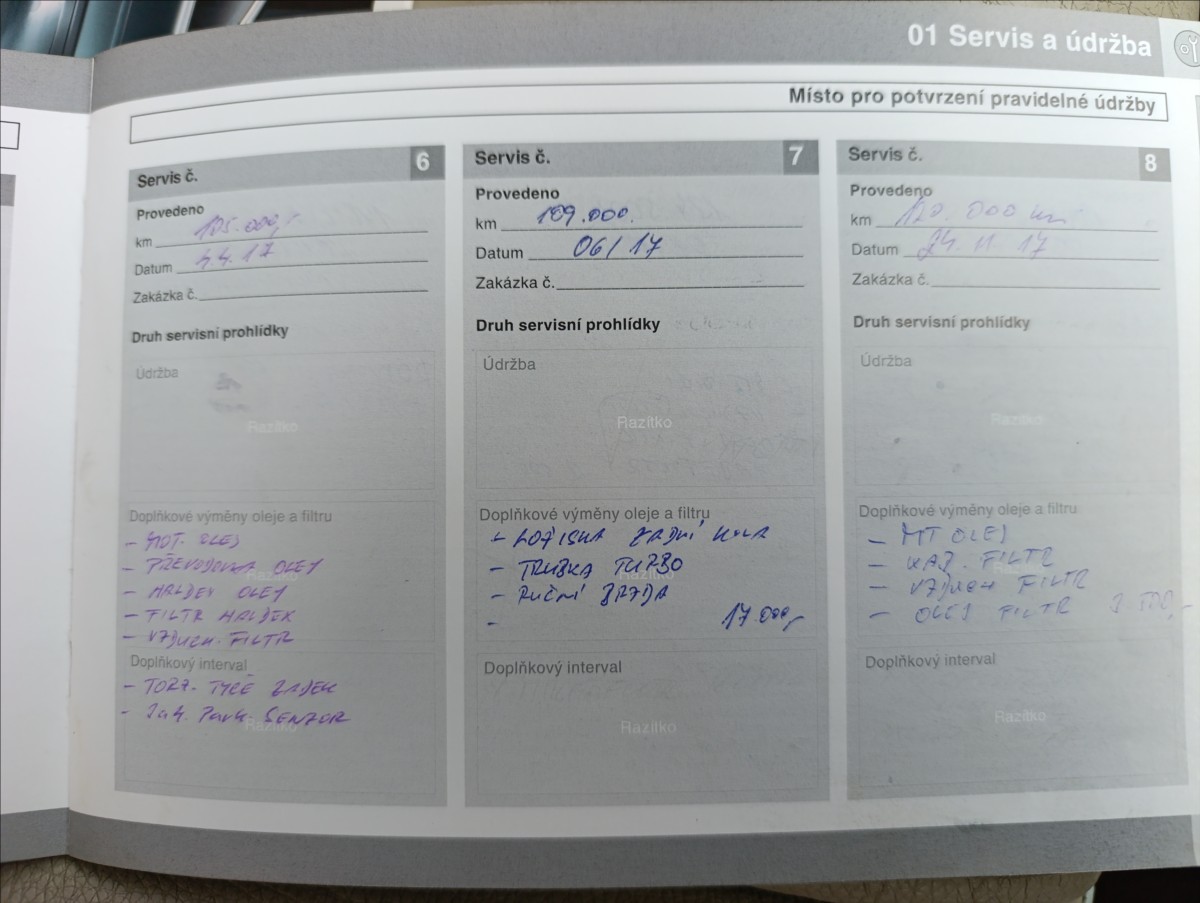 01 Servis a údržba
Místo pro potvrzení pravidelné údržby
Servis č. 6
Provedeno
km 105.000,-
Datum 4.4.17
Zakázka č.
Druh servisní prohlídky
Údržba
Razítko
Doplňkové výměny oleje a filtru
- MOT. OLEJ
- PŘEVODOVK OLEJ
- HALDEX OLEJ
- FILTR HALDEX
- VZDUCH. FILTR
Doplňkový interval
- TORZ. TYČE ZADEK
- Zak. Park. SENZOR
Razítko
Servis č. 7
Provedeno
km 109.000.
Datum 06/17
Zakázka č.
Druh servisní prohlídky
Údržba
Razítko
Doplňkové výměny oleje a filtru
- LOŽISKA ZADNÍ KOLA
- TRUBKA TURBO
Razítko
- RUČNÍ BRZDA
- 17.000,-
Doplňkový interval
Razítko
Servis č. 8
Provedeno
km 120.000 km
Datum 24.11.17
Zakázka č.
Druh servisní prohlídky
Údržba
Razítko
Doplňkové výměny oleje a filtru
- MT OLEJ
- KAB. FILTR
- VZDUCH FILTR
- OLEJ FILTR
Doplňkový interval
Razítko